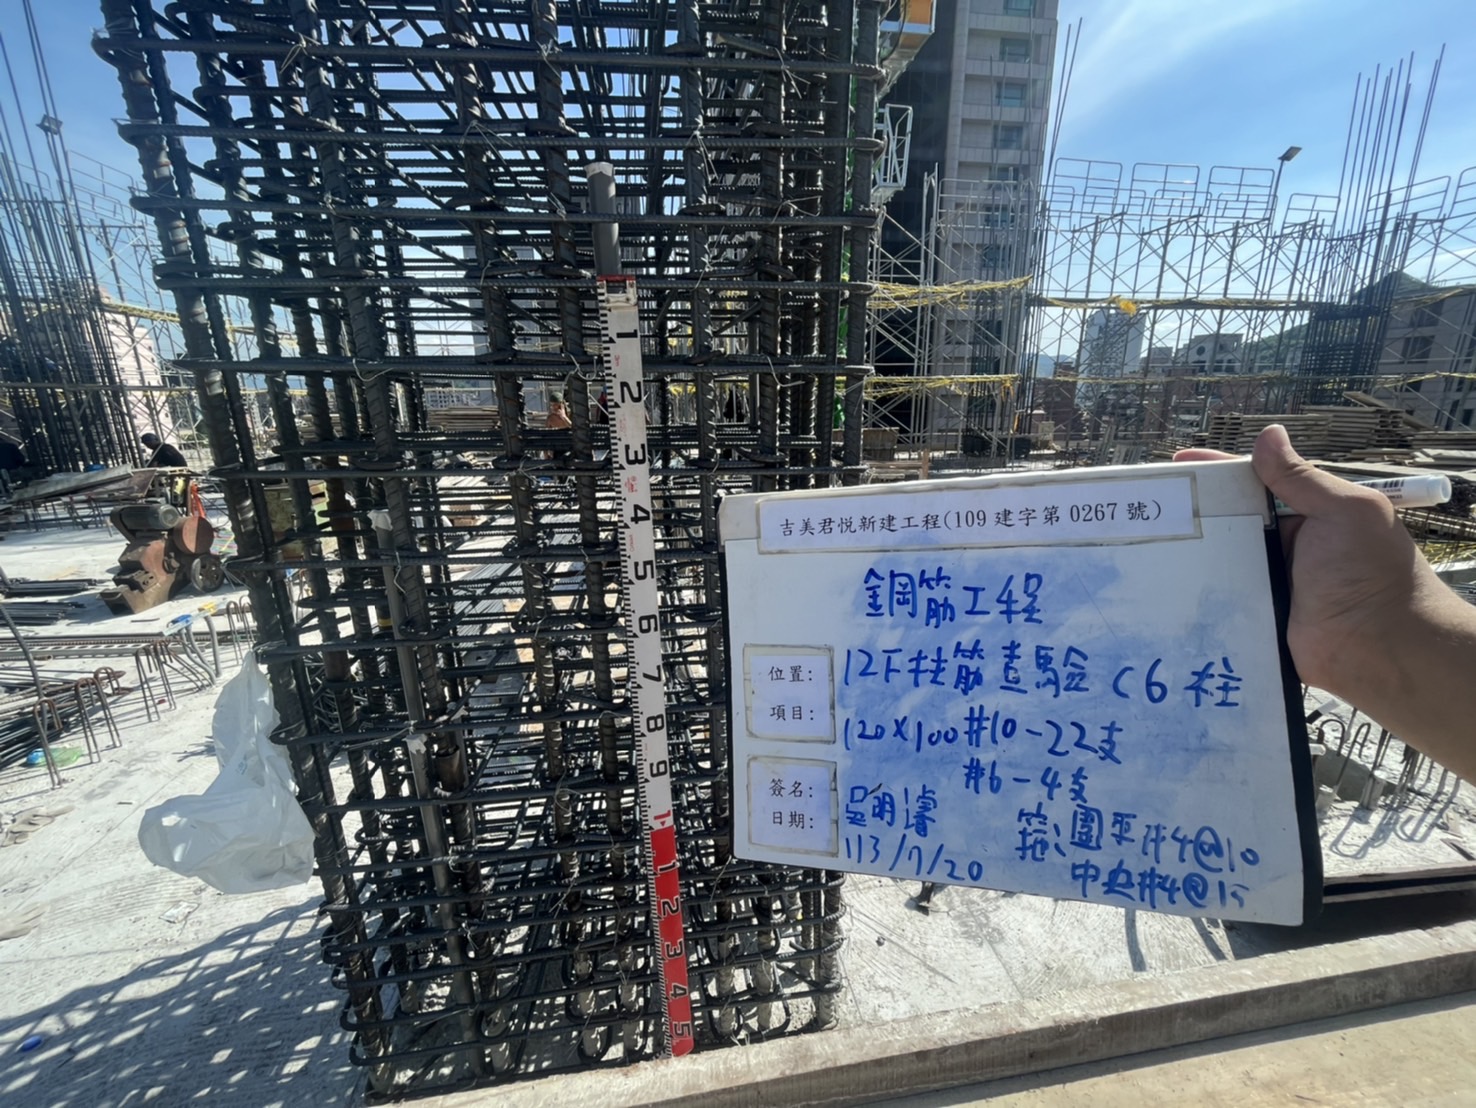 吉美君悦新建工程(109建字第0267號)
鋼筋工程
位置: 12F柱筋查驗 C6柱
項目: 120×100 #10-22支
#6-4支
簽名:
箍: 圍束#4@10
日期: 113/7/20
中央#4@15
1
2
3
4
5
6
7
8
9
1
1
2
3
4
5